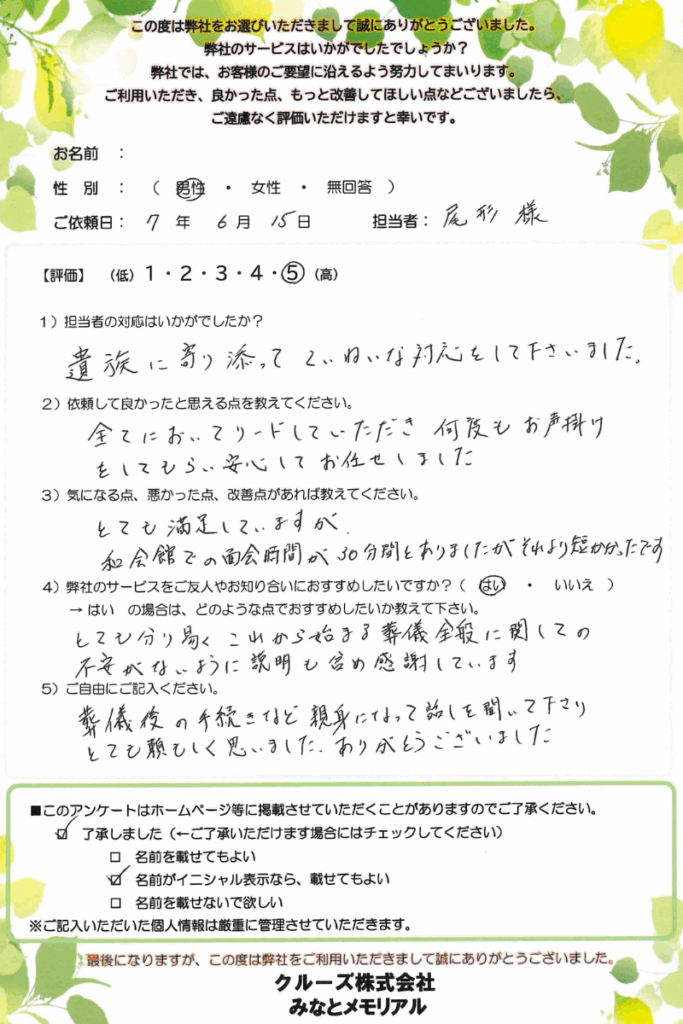 この度は弊社をお選びいただきまして誠にありがとうございました。
弊社のサービスはいかがでしたでしょうか？
弊社では、お客様のご要望に沿えるよう努力してまいります。
ご利用いただき、良かった点、もっと改善してほしい点などございましたら、
ご遠慮なく評価いただけますと幸いです。
お名前 ：
性 別 ： （ 男性 ・ 女性 ・ 無回答 ）
ご依頼日： 7 年 6 月 15 日 担当者： 尾形 様
【評価】 （低）1・2・3・4・⑤（高）
1）担当者の対応はいかがでしたか？
遺族に寄り添って ていねいな対応をして下さいました。
2）依頼して良かったと思える点を教えてください。
全てにおいてリードしていただき 何度もお声掛け
をしてもらい安心してお任せしました
3）気になる点、悪かった点、改善点があれば教えてください。
とても満足していますが、
和会館での面会時間が30分間とありましたがそれより短かかったです
4）弊社のサービスをご友人やお知り合いにおすすめしたいですか？（ はい ・ いいえ ）
→ はい の場合は、どのような点でおすすめしたいか教えて下さい。
とても分り易く これから始まる葬儀全般に関しての
不安がないように説明も含め感謝しています
5）ご自由にご記入ください。
葬儀後の手続きなど親身になって話しを聞いて下さり
とても頼もしく思いました。ありがとうございました
■このアンケートはホームページ等に掲載させていただくことがありますのでご了承ください。
☑ 了承しました（←ご了承いただけます場合にはチェックしてください）
□ 名前を載せてもよい
☑ 名前がイニシャル表示なら、載せてもよい
□ 名前を載せないで欲しい
※ご記入いただいた個人情報は厳重に管理させていただきます。
最後になりますが、この度は弊社をご利用いただきまして誠にありがとうございました。
クルーズ株式会社
みなとメモリアル